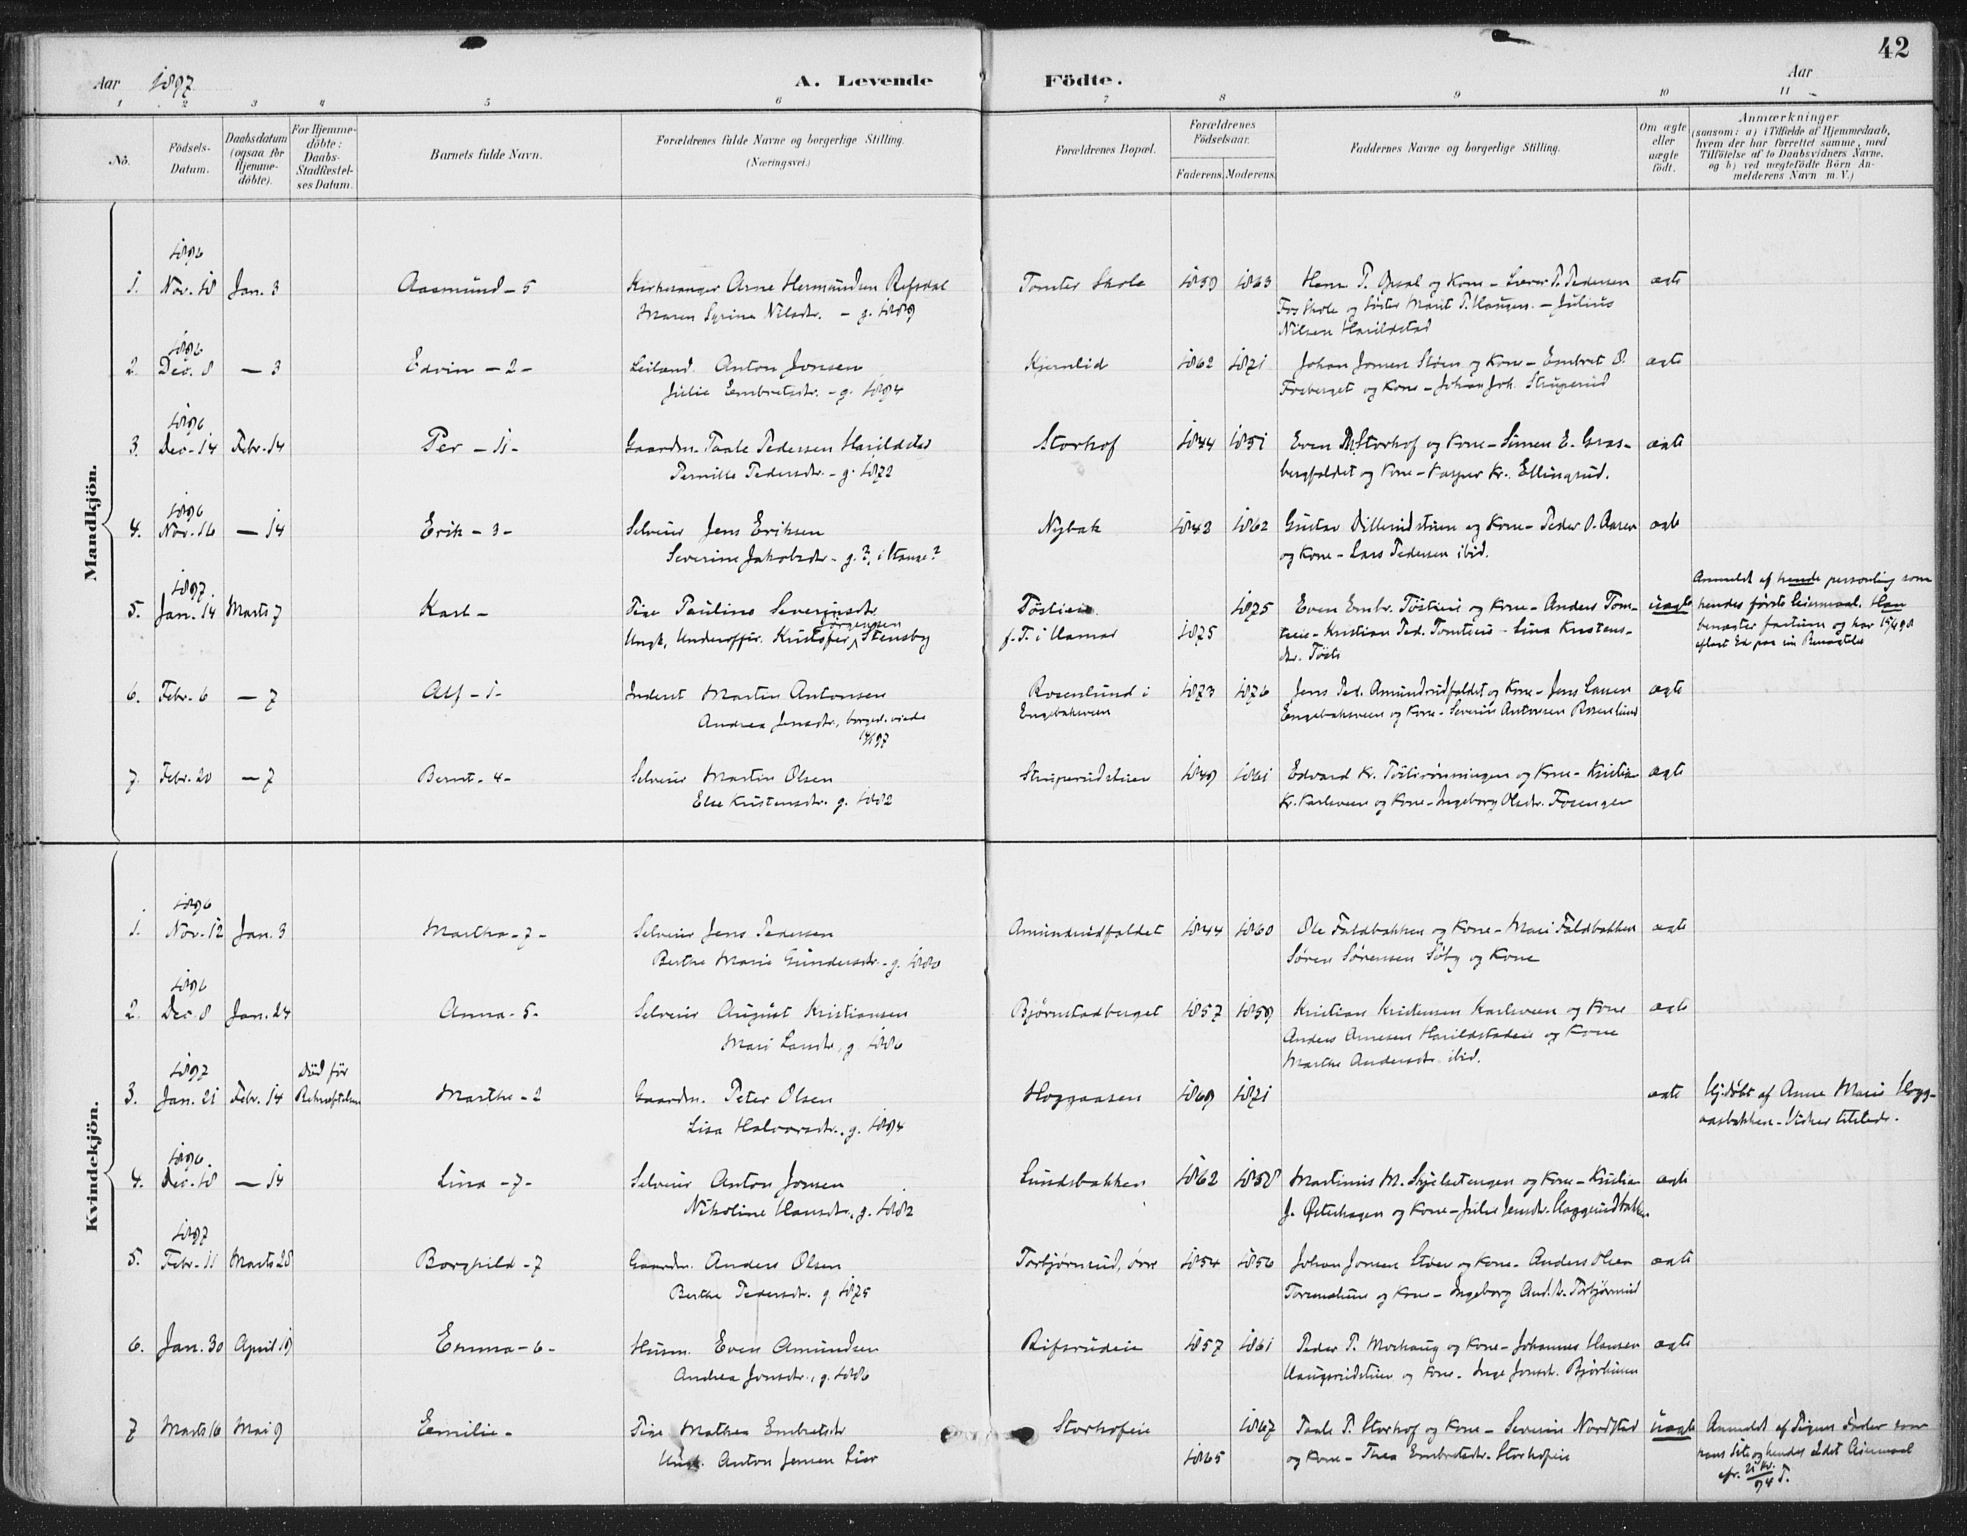 42
Aar 1897 A. Levende Födte. Aar
1 2 3 4 5 6 7 8 9 10 11
No. Födsels-Datum. Daabsdatum (ogsaa för Hjemmedöbte). For Hjemmedöbte: Daabs-Stadfæstelses Datum. Barnets fulde Navn. Forældrenes fulde Navne og borgerlige Stilling. (Næringsvei.) Forældrenes Bopæl. Forældrenes Födselsaar. Faderens. Moderens. Faddernes Navne og borgerlige Stilling. Om ægte eller uægte födt. Anmærkninger (saasom: a) i Tilfælde af Hjemmedaab, hvem der har forrettet samme, med Tilföielse af to Daabsvidners Navne, og b) ved uægtefödte Börn Anmelderens Navn m. V.)
Mandkjön.
1896
1. Nov. 18 Jan. 3 Aasmund - 5 Kirkesanger Arne Hermundsen Refsdal Tomter Skole 1859 1863 Hans P. Opsal og Kone - Lærer P. Pedersen ægte
Maren Syrine Nilsdtr. - g. 1889 Fos Skole og Søster Marit P. Haugen. - Julius
Nilsen Harildstad
1896
2. Dec. 8 - 3 Edvin - 2 - Leilænd. Anton Jonsen Kjernlid 1862 1871 Johan Jonsen Støen og Kone - Embret O. ægte
Julie Embretsdtr. - g. 1894 Froberget og Kone - Johan Joh. Struperud
1896
3. Dec. 14 Febr. 14 Per - 11 - Gaardm. Taale Pedersen Harildstad Storhof 1844 1851 Even P. Storhof og Kone - Simen E. Gras- ægte
Pernille Pedersdtr. - g. 1872 bergfaldet og Kone - Kasper Kr. Ellingsrud.
1896
4. Nov. 16 - 14 Erik - 3 - Selveier Jens Eriksen Nybak 1848 1862 Gustav Dillerudstuen og Kone - Peder O. Aasen ægte
Severine Jakobsdtr - g. ?, i Stange? og Kone - Lars Pedersen ibid.
1897.
5. Jan. 14 Marts 7 Karl - Pige Pauline Severinsdtr. Tøstieie 1875 Even Embr. Tøstieie og Kone - Anders Tom- uægte Anmeldt af hende personlig som
Ungk. Underoffir. Kristofer Jørgensen Stensby f. T. i Hamar 1875 teie - Kristian Ped. Tomteeie - Lina Kristens- hendes første Leiermaal. Han
dtr. Tøsti benægter factum og har 15/4 98
aflagt Ed paa sin Benægtelse
6. Febr. 6 - 7 Alf - 1 - Inderst Martin Antonsen Rosenlund i 1873 1876 Jens Ped. Amundrudfaldet og Kone - Jens Larsen ægte
Andrea Jensdtr., borgerl. viede Engebaksveen Engebaksveen og Kone - Severin Antonsen Rosenlund
97
7. Febr. 20 - 7 Bernt - 4 - Selveier Martin Olsen Struperudstuen 1849 1861 Edvard Kr. Tøstirønningen og Kone - Kristian ægte
Else Kristensdtr. g. 1882 Kr. Karlsveen og Kone - Ingeborg Olsdtr. Fosengen
Kvindekjön.
1896
1. Nov. 12 Jan. 3 Martha - 7 - Selveier Jens Pedersen Amundrudfaldet 1844 1860 Ole Faldbakken og Kone - Mari Faldbakken ægte
Berthe Marie Gundersdtr. - g. 1880 Søren Sørensen Søby og Kone
1896
2. Dec. 8 Jan. 24 Anna - 5 - Selveier August Kristiansen Bjørnstadberget 1857 1859 Kristian Kristensen Karlsveen og Kone ægte
Mari Larsdtr., g. 1886 Anders Arnesen Harildstadeie og Kone
Marthe Andersdtr. ibid.
1897 Død før
3. Jan. 21 Febr. 14 Bekræftelsen Marthe - 2 Gaardm. Peter Olsen Hoggaasen 1869 1871 ægte Hj.døbt af Anne Marie Hogg-
Lisa Halvorsdtr., g. 1894 aasbakken - Vidner tilstede.
1896
4. Dec. 18 - 14 Lina - 7 - Selveier Anton Jonsen Lundsbakken 1862 1858 Martinius M. Skjelsetengen og Kone - Kristian ægte
Nikoline Hansdtr., g. 1882 J. Østerhagen og Kone - Julie Jensdtr. Haggerudbakken
1897
5. Febr. 11 Marts 28 Borghild - 7 Gaardm. Anders Olsen Torbjørnrud, øvre 1854 1856 Johan Jonsen Støen og Kone - Anders Olsen ægte
Berthe Pedersdtr. g. 1875 og Kone - Ingeborg And.d. Torbjørnrud
6. Jan. 30 April 19 Emma - 6 - Husm. Even Amundsen Rifsrudeie 1857 1861 Peder P. Morhaug og Kone - Johannes Hansen ægte
Andrea Jonsdtr., g. 1886 Haugsrudstuen og Kone - Inge Jonsdtr. Bjørkmoen
7 Marts 16 Mai 9 Emilie - Pige Mathea Embretsdtr Storhofeie 1867 Taale P. Storhof og Kone - Severin Nordstad uægte Anmeldt af Pigens Fader som
Ungk. Anton Jensen Lier 1865 og Kone - Thea Embretsdtr. Storhofeie hans 1ste og hendes 2det Leiermaal
cfr. 21 Kv. 94 T.